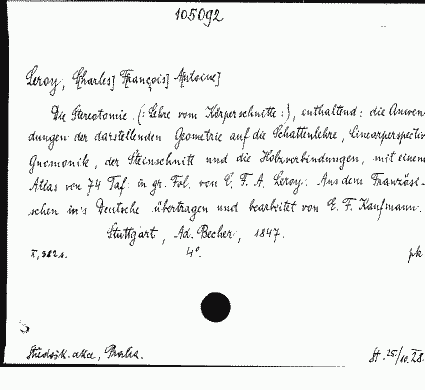 105092
Leroy, Charles] François] Antoine]
Die Stereotomie (: Lehre vom Körperschnitte :), enthaltend: die Anwen-
dungen der darstellenden Geometrie auf die Schattenlehre, Linearperspectiv
Gnomonik, der Steinschnitt und die Holzverbindungen, mit einem
Atlas von 74 Taf. in gr. Fol. von C. F. A. Leroy. Aus dem Französi-
schen in's Deutsche übertragen und bearbeitet von E. F. Kaufmann.
Stuttgart, Ad. Becher, 1847.
X, 382 s. 4°. pk
Praha. 25/10.28.